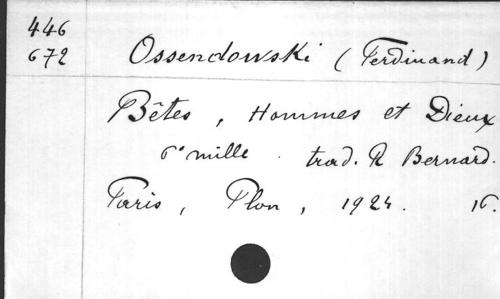 446
672
Ossendowski (Ferdinand)
Bêtes, Hommes et Dieux
6e mille. trad. R Bernard.
Paris, Plon, 1924. 16.